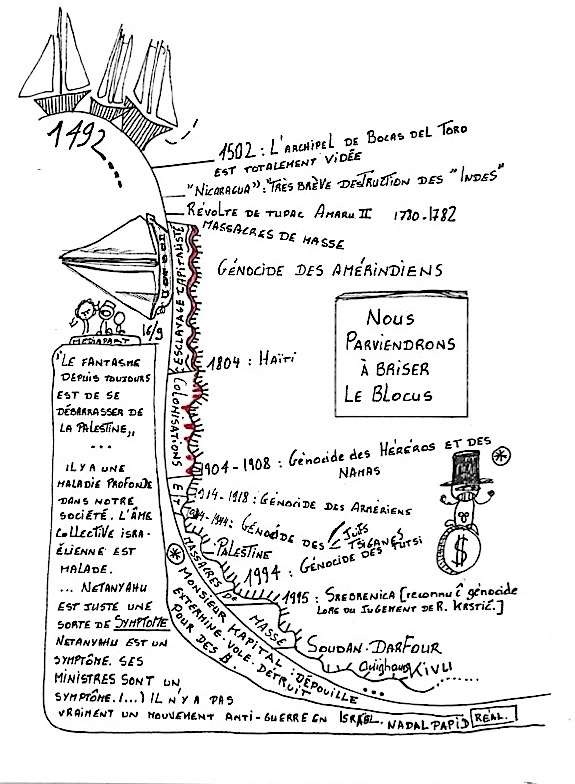 1492
1502 : L'ARCHIPEL DE BOCAS DEL TORO
EST TOTALEMENT VIDÉE
"NICARAGUA" : "TRÈS BRÈVE DESTRUCTION DES "INDES"
RÉVOLTE DE TUPAC AMARU II 1780-1782
MASSACRES DE MASSE
GÉNOCIDE DES AMÉRINDIENS
ESCLAVAGE CAPITALISTE
1804 : HAÏTI
NOUS
PARVIENDRONS
À BRISER
LE BLOCUS
COLONISATIONS
1904-1908 : GÉNOCIDE DES HÉRÉROS ET DES
NAMAS
ET
1914-1918 : GÉNOCIDE DES ARMÉNIENS
GÉNOCIDE DES JUIFS
TSIGANES
PALESTINE
1994 : GÉNOCIDE DES TUTSI
1995 : SREBRENICA [RECONNU É GÉNOCIDE
LORS DU JUGEMENT DE R. KRSTIĆ.]
MASSACRES DE MASSE
SOUDAN. DARFOUR
OUIGHOURS KIVU
$
MONSIEUR KAPITAL : DÉPOUILLE
EXTERMINE. VOLE. DÉTRUIT
POUR DES
16/9
MEDIAPART
"LE FANTASME
DEPUIS TOUJOURS
EST DE SE
DÉBARRASSER DE
LA PALESTINE,,
...
IL Y A UNE
MALADIE PROFONDE
DANS NOTRE
SOCIÉTÉ. L'ÂME
COLLECTIVE ISRA-
ÉLIENNE EST
MALADE.
... NETANYAHU
EST JUSTE UNE
SORTE DE SYMPTÔME
NETANYAHU EST UN
SYMPTÔME. SES
MINISTRES SONT UN
SYMPTÔME. (...) IL N'Y A PAS
VRAIMENT UN MOUVEMENT ANTI-GUERRE EN ISRAËL. NADAL PAPID RÉAL.